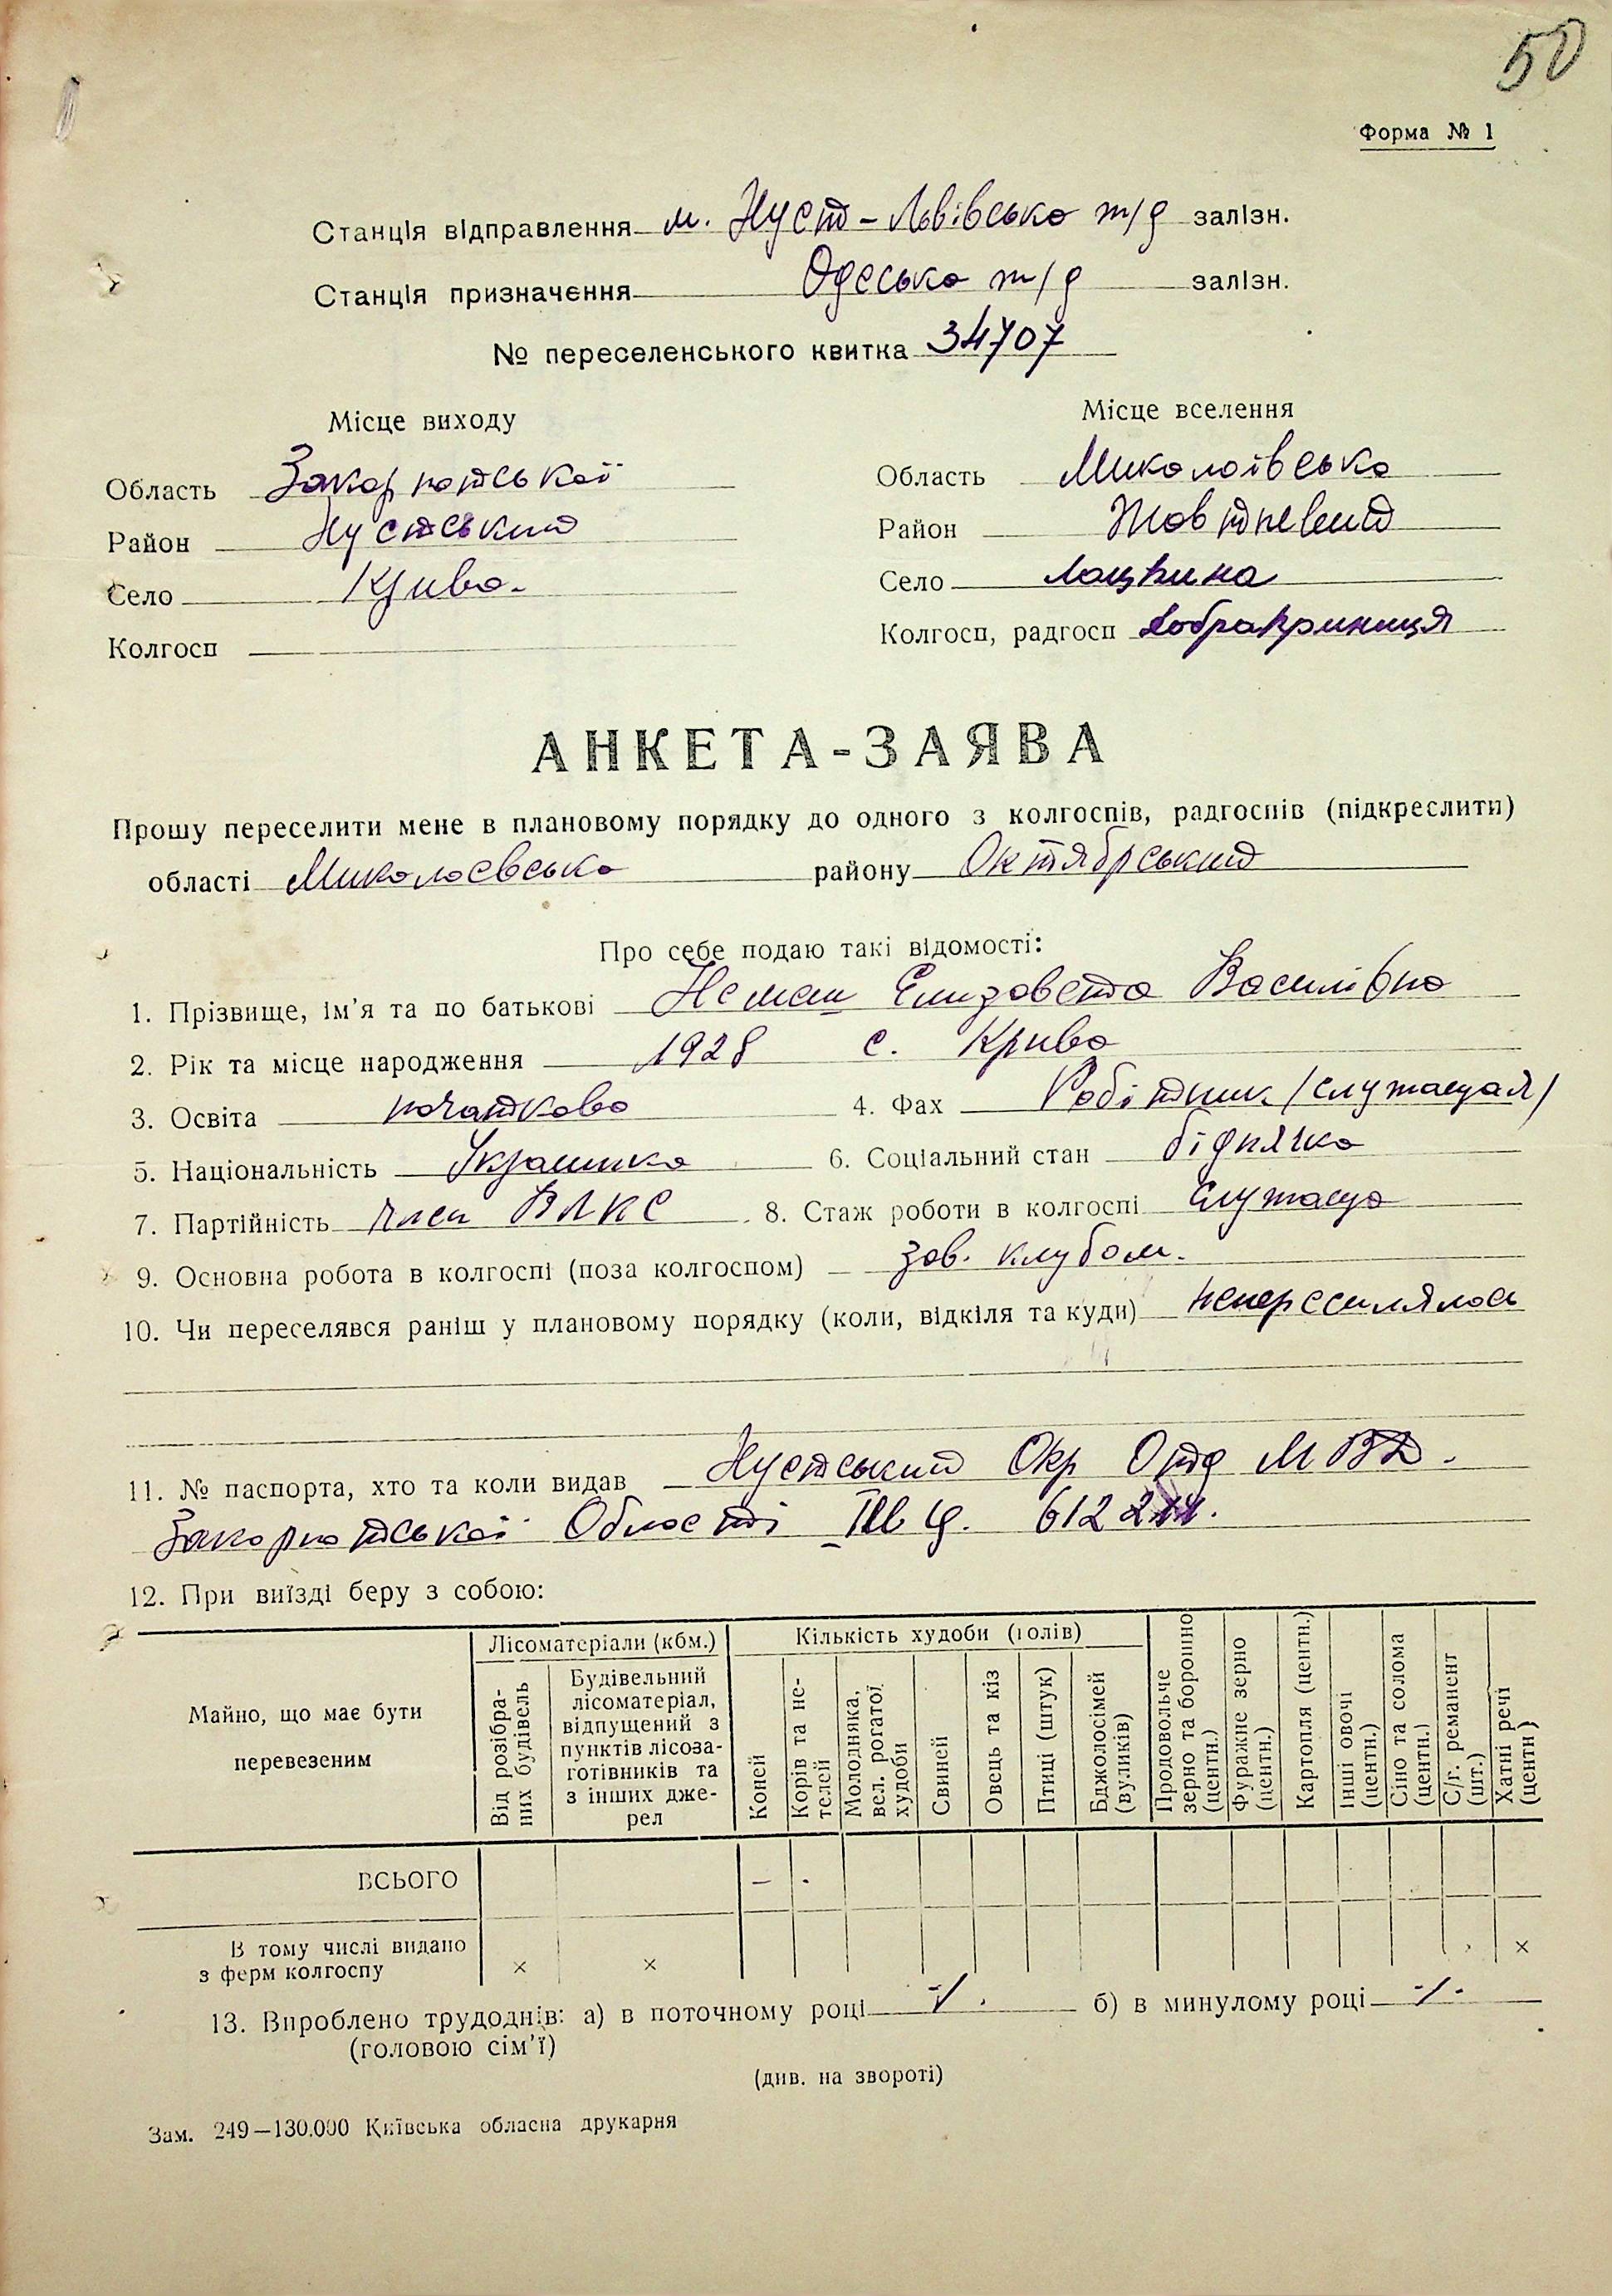 50
Форма № 1
Станція відправлення м. Хуст - Львівсько ж/д залізн.
Станція призначення Одесько ж/д залізн.
№ переселенського квитка 34707
Місце виходу
Місце вселення
Область Закарпатської
Область Миколаївсько
Район Хустський
Район Жовтневий
Село Крива.
Село Лоцкина
Колгосп
Колгосп, радгосп Добракриниця
АНКЕТА-ЗАЯВА
Прошу переселити мене в плановому порядку до одного з колгоспів, радгоспів (підкреслити)
області Миколаєвсько району Октябрський
Про себе подаю такі відомості:
1. Прізвище, ім'я та по батькові Немеш Єлизавета Василівна
2. Рік та місце народження 1928 с. Крива
3. Освіта початкова 4. Фах Робітник /служащая/
5. Національність Українка 6. Соціальний стан біднячка
7. Партійність член ВЛКС 8. Стаж роботи в колгоспі служаща
9. Основна робота в колгоспі (поза колгоспом) зав. клубом.
10. Чи переселявся раніш у плановому порядку (коли, відкіля та куди) непереселялась
11. № паспорта, хто та коли видав Хустський Окр Отд МВД.
Закарпатської Області
12. При виїзді беру з собою:
Майно, що має бути перевезеним
Лісоматеріали (кбм.)
Від розібраних будівель
Будівельний лісоматеріал, відпущений з пунктів лісозаготівників та з інших джерел
Кількість худоби (голів)
Коней
Корів та нетелей
Молодняка, вел. рогатої худоби
Свиней
Овець та кіз
Птиці (штук)
Бджолосімей (вуликів)
Продовольче зерно та борошно (центн.)
Фуражне зерно (центн.)
Картопля (центн.)
Інші овочі (центн.)
Сіно та солома (центн.)
С/г. реманент (шт.)
Хатні речі (центн)
ВСЬОГО –
В тому числі видано
з ферм колгоспу × × ×
13. Вироблено трудоднів: а) в поточному році -/. б) в минулому році -/-
(головою сім'ї)
(див. на звороті)
Зам. 249—130.000 Київська обласна друкарня